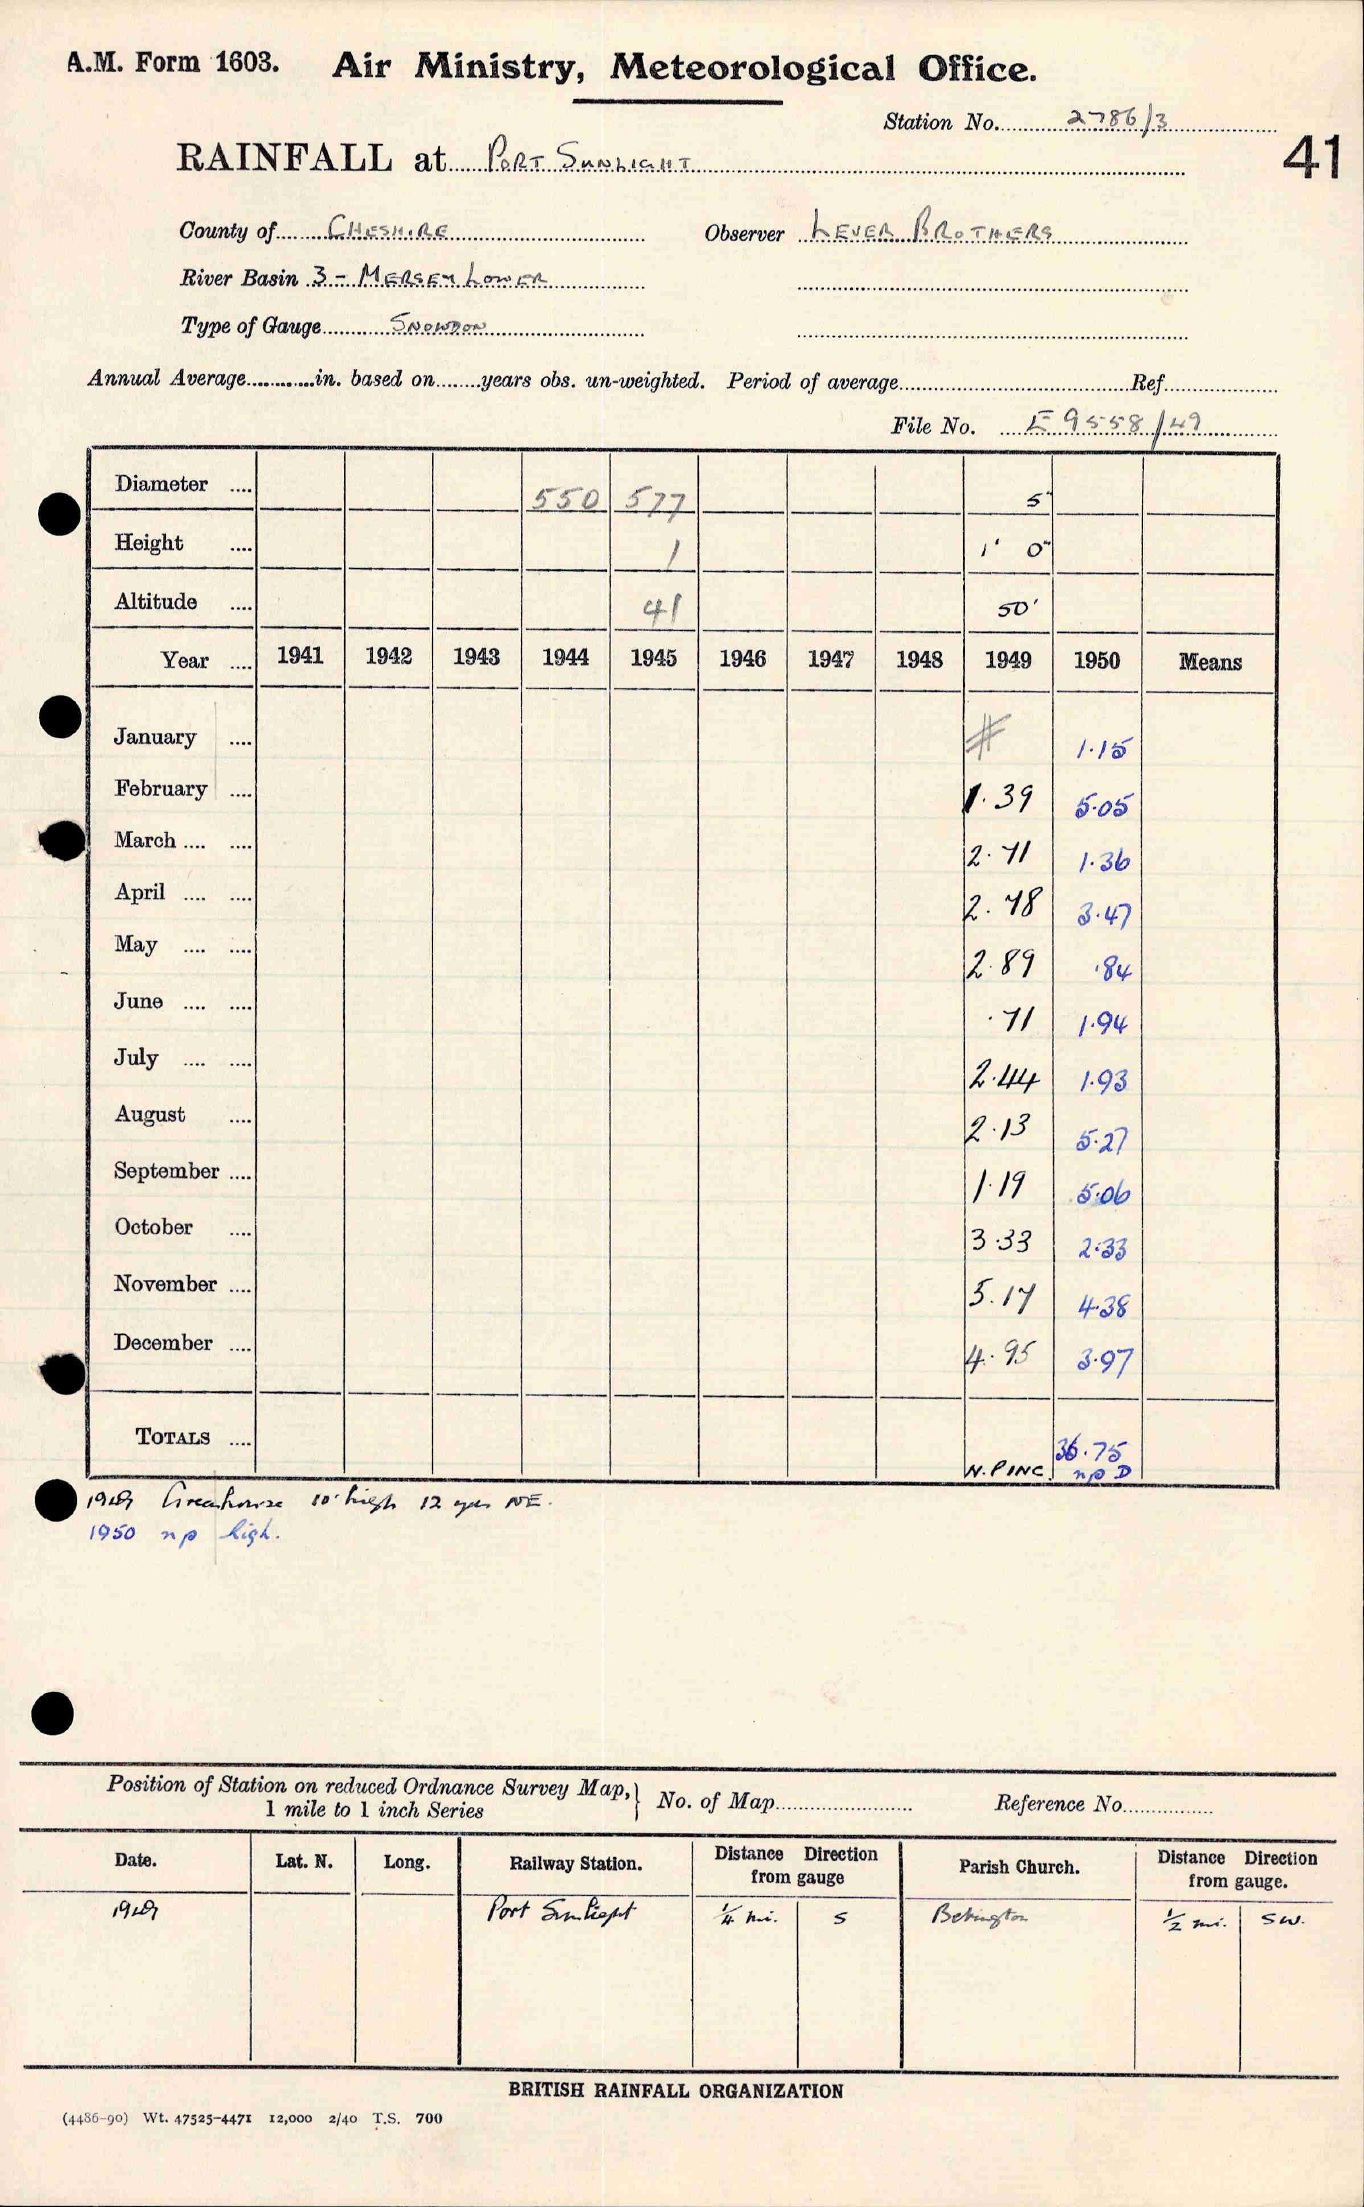 A.M. Form 1603. Air Ministry, Meteorological Office.
Station No. 2786/3
41
RAINFALL at PORT SUNLIGHT
County of CHESHIRE Observer LEVER BROTHERS
River Basin 3 - MERSEY LOWER
Type of Gauge SNOWDON
Annual Average............in. based on........years obs. un-weighted. Period of average.................... Ref....................
File No. E 9558/49
Diameter .... 550 577 5"
Height .... 1 1' 0"
Altitude .... 41 50'
Year .... 1941 1942 1943 1944 1945 1946 1947 1948 1949 1950 Means
January .... # 1.15
February .... 1.39 5.05
March .... .... 2.71 1.36
April .... .... 2.78 3.47
May .... .... 2.89 .84
June .... .... .71 1.94
July .... .... 2.44 1.93
August .... 2.13 5.27
September .... 1.19 5.06
October .... 3.33 2.33
November .... 5.17 4.38
December .... 4.95 3.97
TOTALS .... 36.75
N.P INC. np D
1949 Greenhouse 10' high 12 yds NE.
1950 np high.
Position of Station on reduced Ordnance Survey Map,} No. of Map.................... Reference No................
1 mile to 1 inch Series
Date. Lat. N. Long. Railway Station. Distance Direction from gauge Parish Church. Distance Direction from gauge.
1949 Port Sunlight 1/4 mi. S Bebington 1/2 mi. SW.
BRITISH RAINFALL ORGANIZATION
(4486-90) Wt. 47525-4471 12,000 2/40 T.S. 700